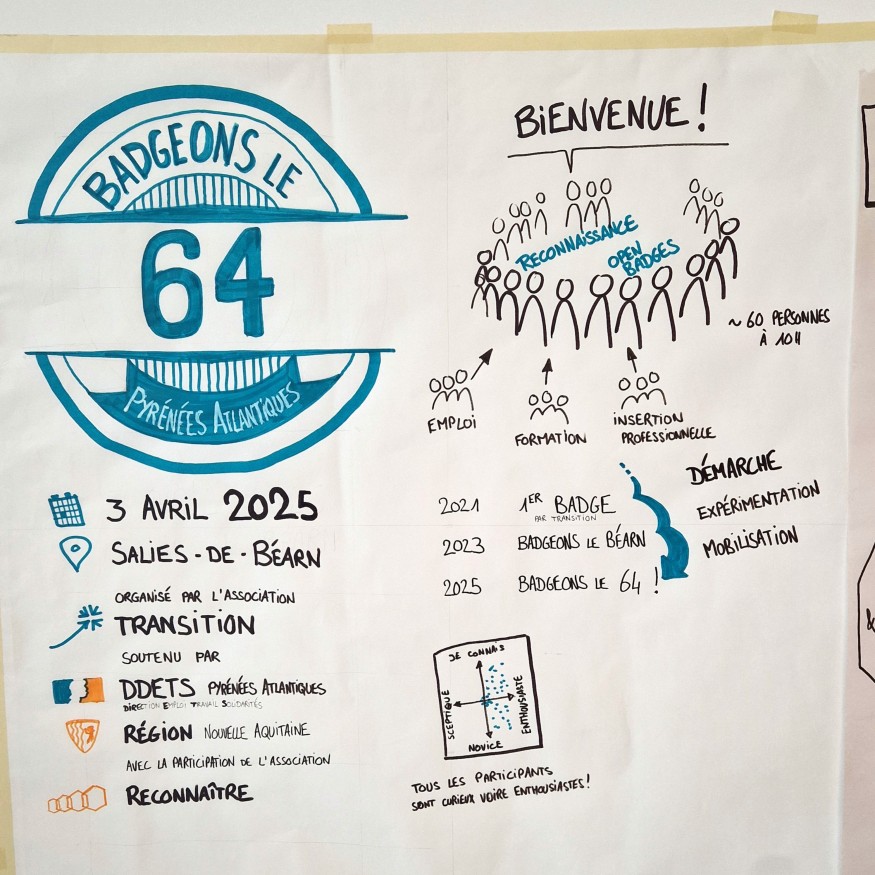 BADGEONS LE
64
PYRÉNÉES ATLANTIQUES
3 AVRIL 2025
SALIES-DE-BÉARN
ORGANISÉ PAR L'ASSOCIATION
TRANSITION
SOUTENU PAR
DDETS PYRÉNÉES ATLANTIQUES
DIRECTION EMPLOI TRAVAIL SOLIDARITÉS
RÉGION NOUVELLE AQUITAINE
AVEC LA PARTICIPATION DE L'ASSOCIATION
RECONNAÎTRE
BIENVENUE !
RECONNAISSANCE
OPEN
BADGES
~ 60 PERSONNES
À 10H
EMPLOI
FORMATION
INSERTION
PROFESSIONNELLE
2021 1ER BADGE
PAR TRANSITION
2023 BADGEONS LE BÉARN
2025 BADGEONS LE 64 !
DÉMARCHE
EXPÉRIMENTATION
MOBILISATION
JE CONNAIS
SCEPTIQUE
ENTHOUSIASTE
NOVICE
TOUS LES PARTICIPANTS
SONT CURIEUX VOIRE ENTHOUSIASTES !